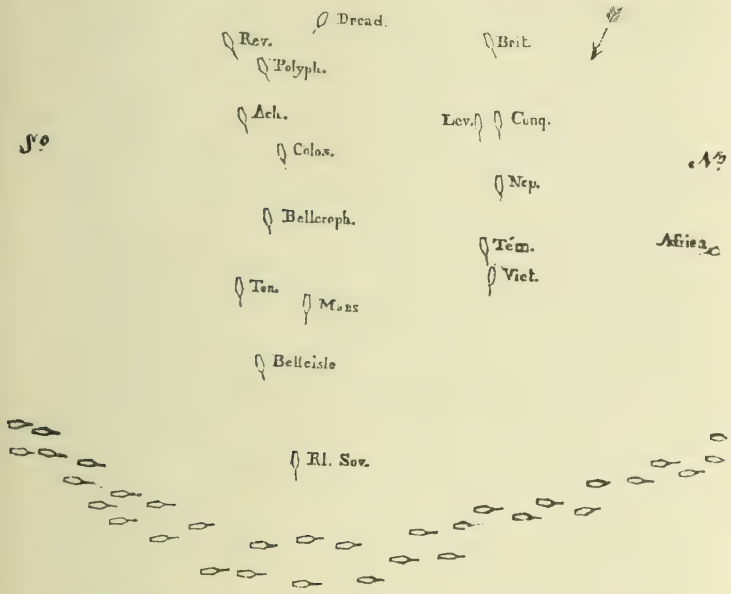 Dread.
Rev.
Brit
Polyph.
Ach.
Lev.
Conq.
So
Colos.
No
Nep.
Belleroph.
Tém.
Africa
Vict.
Ton.
Mars
Belleisle
Rl. Sov.